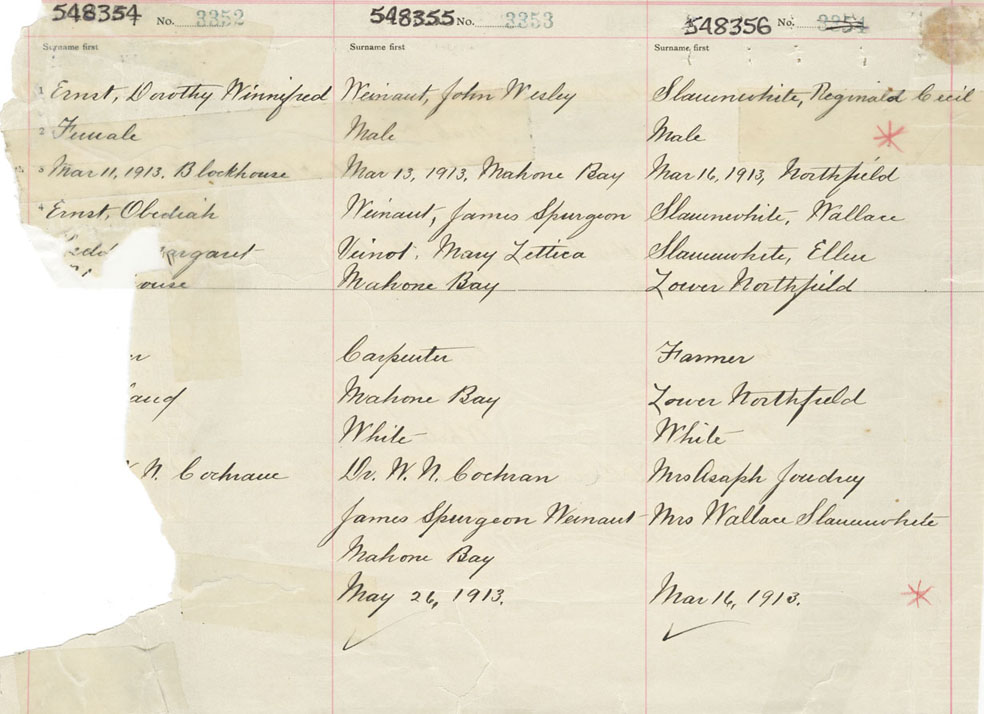 548354 No. 3352
Surname first
1 Ernst, Dorothy Winnifred
2 Female
3 Mar 11, 1913. Blockhouse
4 Ernst, Obediah
N. Cochrane
548355 No. 3353
Surname first
Weinaut, John Wesley
Male
Mar 13, 1913, Mahone Bay
Weinaut, James Spurgeon
Veinot, Mary Lettica
Mahone Bay
Carpenter
Mahone Bay
White
Dr. W. N. Cochran
James Spurgeon Weinaut
Mahone Bay
May 26, 1913.
548356 No. 3354
Surname first
Slaunwhite, Reginald Cecil
Male
Mar 16, 1913, Northfield
Slaunwhite, Wallace
Slaunwhite, Ellen
Lower Northfield
Farmer
Lower Northfield
White
Mrs Asaph Joudrey
Mrs Wallace Slaunwhite
Mar 16, 1913.